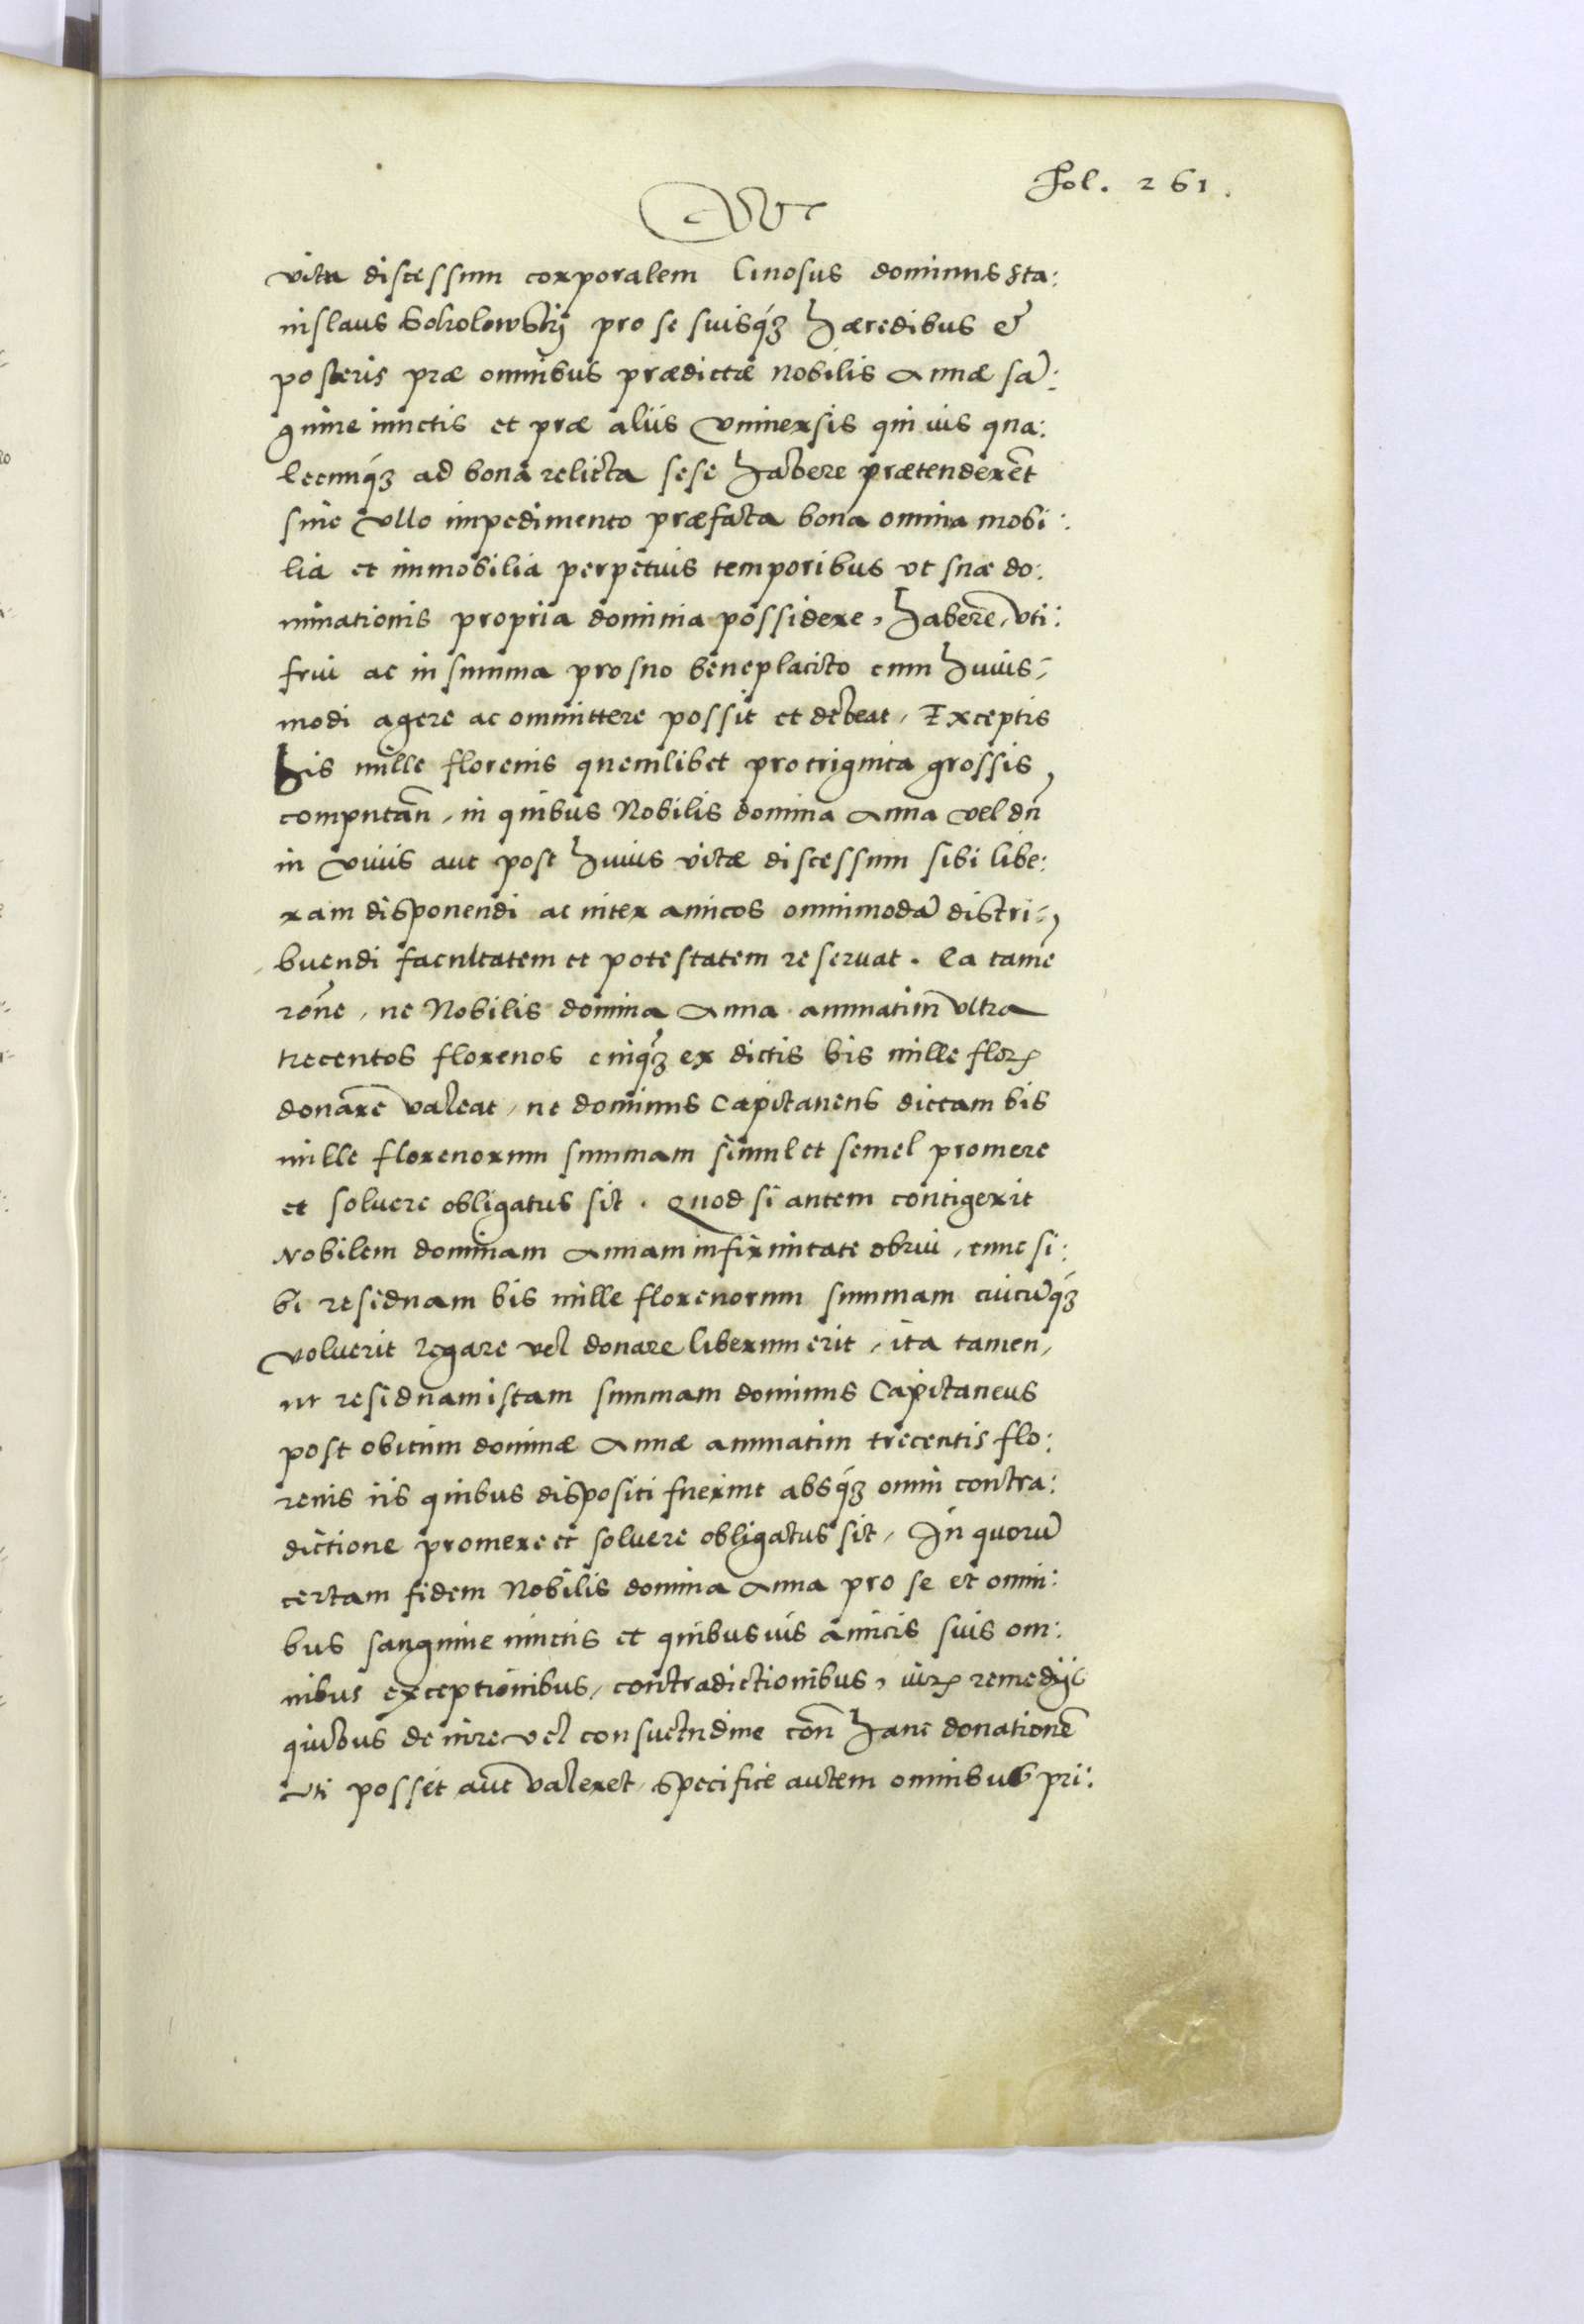 Fol. 261.
W
vita discessum corporalem Gnosus dominus Sta:
nislaus Sokolowskij pro se suisq́ꝫ Hæredibus &
posteris præ omnibus prædictæ Nobilis Annæ sã:
guine iunctis et præ aliis Vniuersis qui ius qua:
lecunq́ꝫ ad bona relicta sese Habere prætenderẽt
sine Vllo impedimento præfata bona omnia mobi:
lia et immobilia perpetuis temporibus vt suæ do:
minationis propria dominia possidere, Habere, vti:
frui ac in summa pro suo beneplacito cum Huius-
modi agere ac ommittere possit et debeat, Exceptis
bis mille florenis quemlibet pro triginta grossis
computañ, in quibus Nobilis domina Anna vel dũ
in Viuis aut post Huius vitæ discessum sibi libe:
ram disponendi ac inter amicos omnimodã distri-
buendi facultatem et potestatem reseruat. Ea tamẽ
rõne, ne Nobilis domina Anna annuatim vltra
trecentos florenos cuiq́ꝫ ex dictis bis mille floꝝ
donare valeat, ne dominus Capitaneus dictam bis
mille florenorum summam simul et semel promere
et soluere obligatus sit. Quod si autem contigerit
Nobilem dominam Annam infirmitate obrui, tunc si:
bi residuam bis mille florenorum summam cuicũq́ꝫ
voluerit legare vel donare liberum erit, ita tamen,
ut residuam istam summam dominus Capitaneus
post obitum dominæ Annæ annuatim trecentis flo:
renis iis quibus dispositi fuerint absq́ꝫ omni contra:
dictione promere et soluere obligatus sit, In quorũ
certam fidem Nobilis domina Anna pro se et omni:
bus sanguine iunctis et quibusuis amicis suis om:
nibus exceptionibus, contradictionibus, iuꝝ remedijs
quibus de iure vel consuetudine con̄ Hanc donationẽ
vti posset aut valeret, specifice autem omnibus pri: